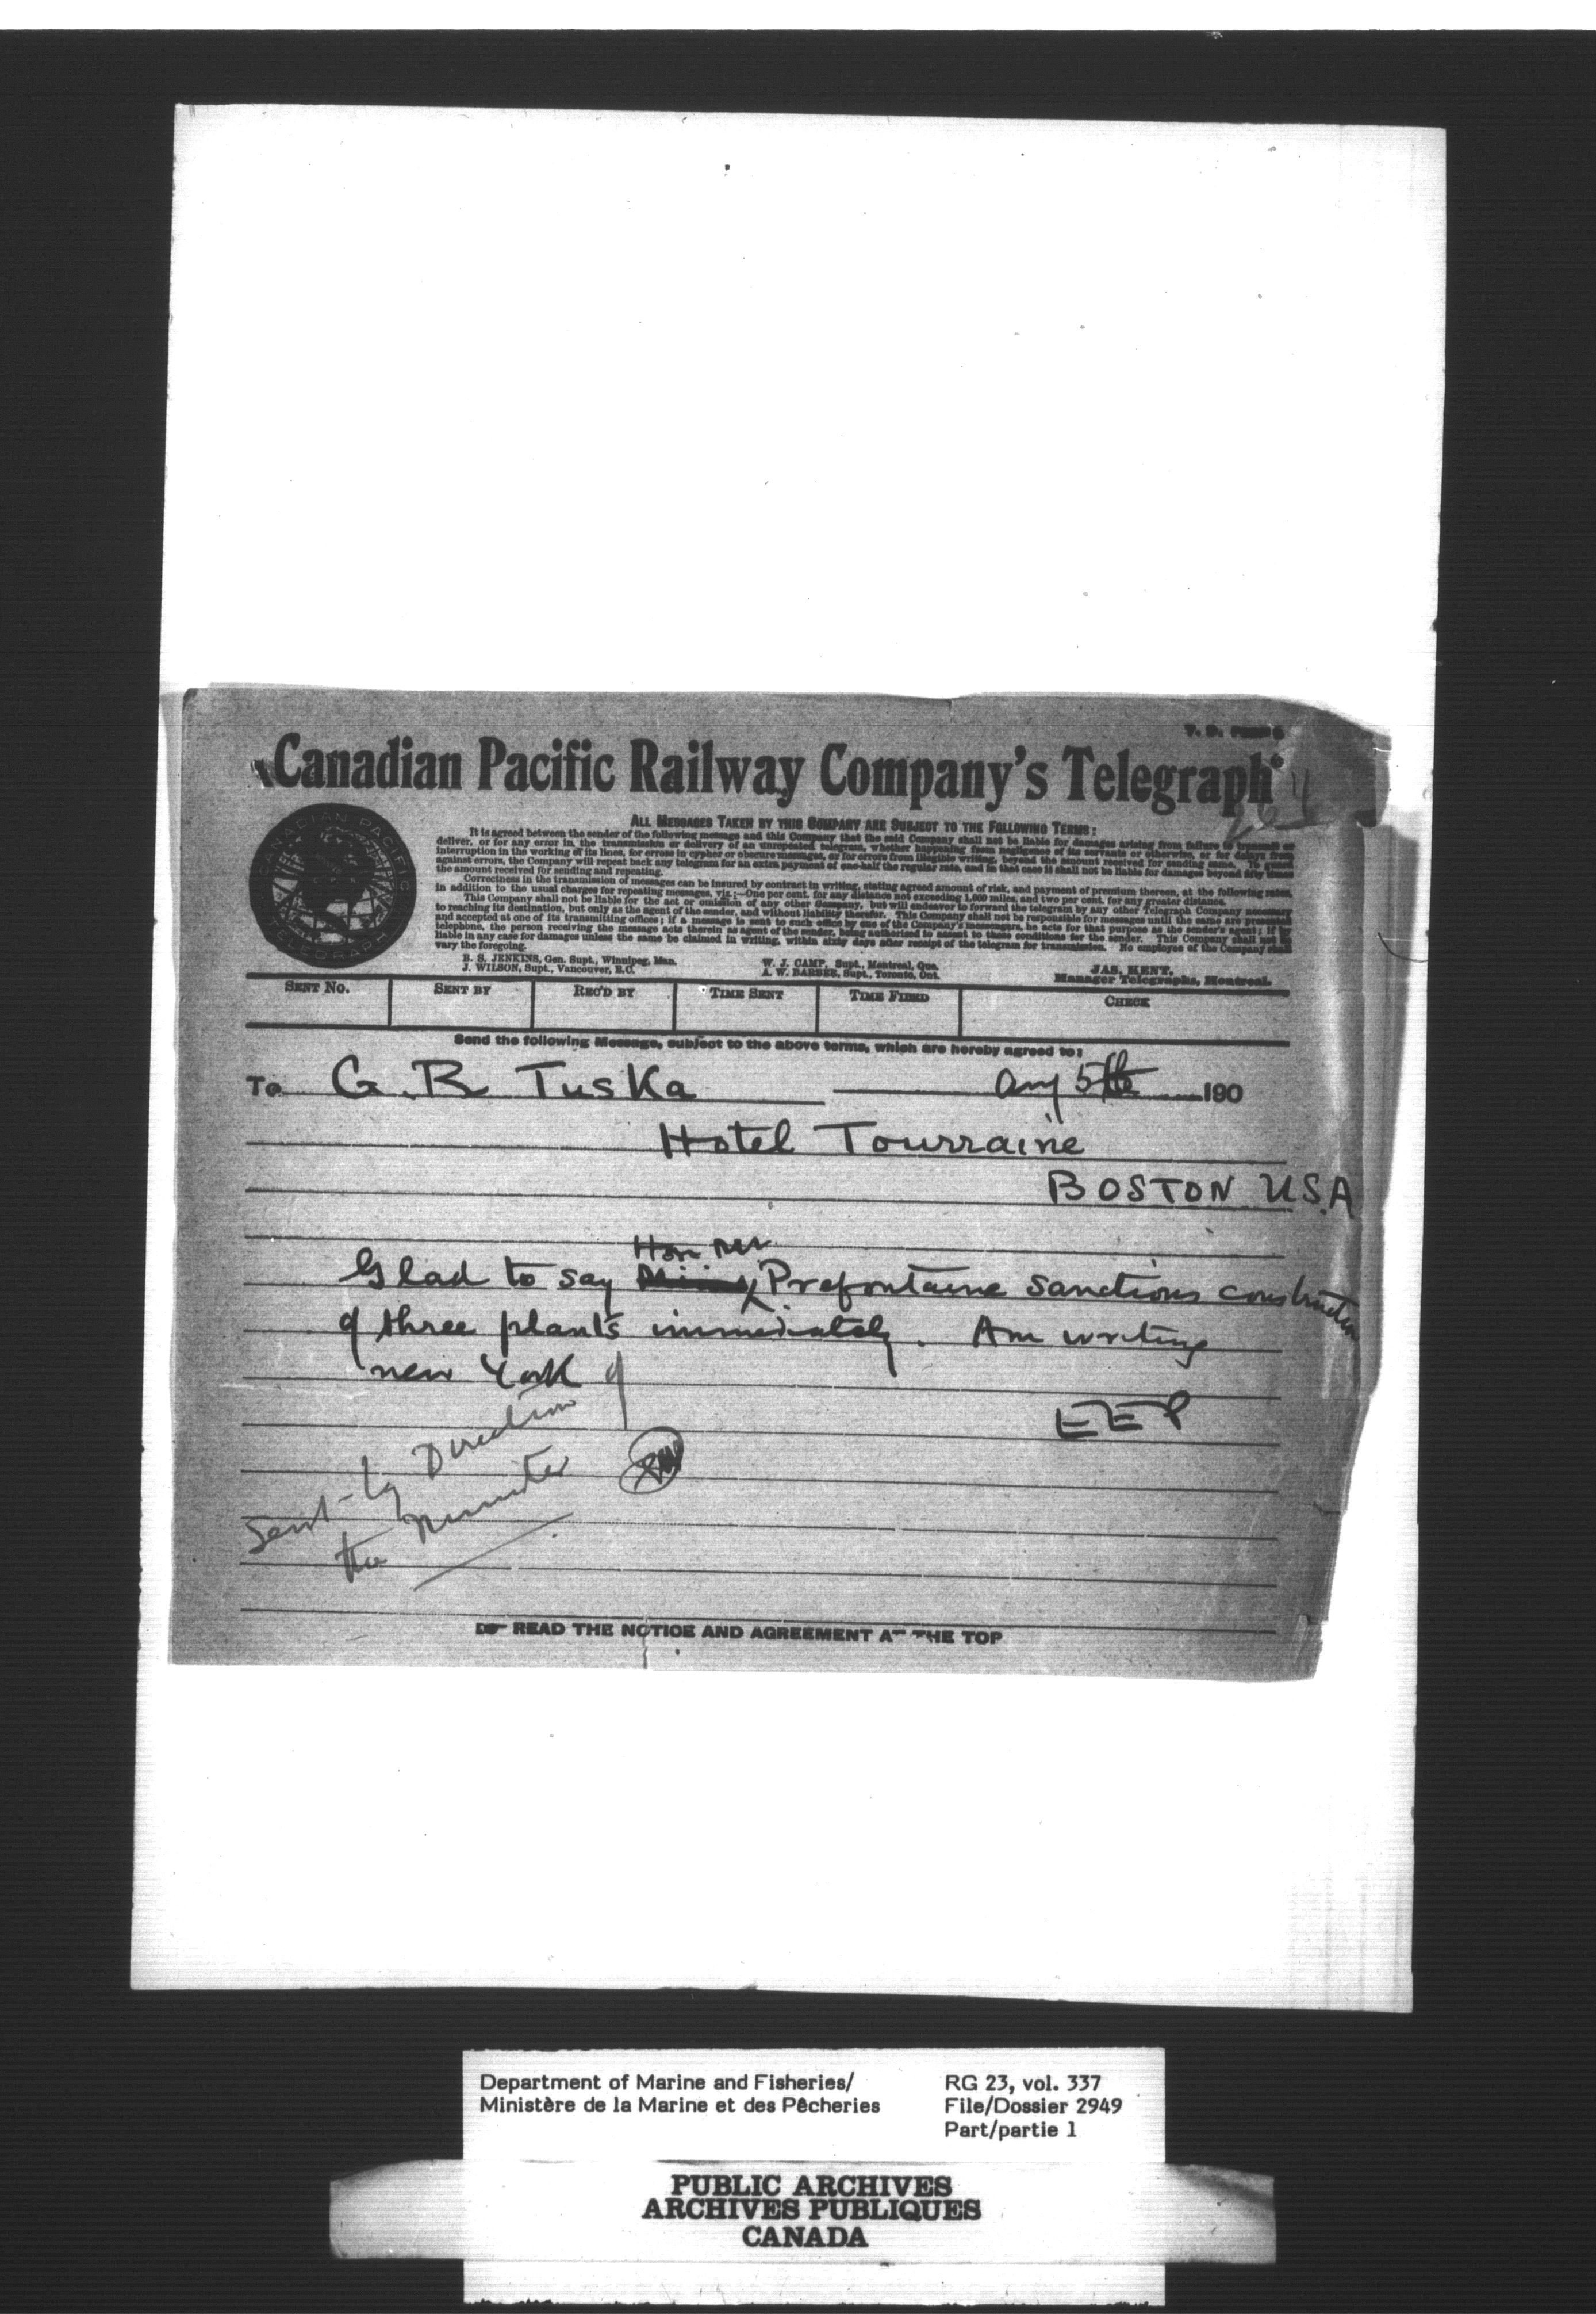 Canadian Pacific Railway Company's Telegraph
CANADIAN PACIFIC
TELEGRAPH
ALL MESSAGES TAKEN BY THIS COMPANY ARE SUBJECT TO THE FOLLOWING TERMS:
It is agreed between the sender of the following message and this Company that the said Company shall not be liable for damages arising from failure to transmit or
deliver, or for any error in the transmission or delivery of an unrepeated telegram, whether happening from negligence of its servants or otherwise, or for delays from
interruption in the working of its lines, for errors in cypher or obscure messages, or for errors from illegible writing, beyond the amount received for sending same. To guard
against errors, the Company will repeat back any telegram for an extra payment of one-half the regular rate, and in that case it shall not be liable for damages beyond fifty times
the amount received for sending and repeating.
Correctness in the transmission of messages can be insured by contract in writing, stating agreed amount of risk, and payment of premium thereon, at the following rates,
in addition to the usual charges for repeating messages, viz:—One per cent. for any distance not exceeding 1,000 miles, and two per cent. for any greater distance.
This Company shall not be liable for the act or omission of any other Company, but will endeavor to forward the telegram by any other Telegraph Company necessary
to reaching its destination, but only as the agent of the sender, and without liability therefor. This Company shall not be responsible for messages until the same are presented
and accepted at one of its transmitting offices; if a message is sent to such office by one of the Company's messengers, he acts for that purpose as the sender's agent; if by
telephone, the person receiving the message acts therein as agent of the sender, being authorized to assent to these conditions for the sender. This Company shall not be
liable in any case for damages unless the same be claimed in writing, within sixty days after receipt of the telegram for transmission. No employee of the Company shall
vary the foregoing.
B. S. JENKINS, Gen. Supt., Winnipeg, Man. W. J. CAMP, Supt., Montreal, Que. JAS. KENT,
J. WILSON, Supt., Vancouver, B.C. A. W. BARBER, Supt., Toronto, Ont. Manager Telegraphs, Montreal.
SENT NO. SENT BY REC'D BY TIME SENT TIME FILED CHECK
Send the following Message, subject to the above terms, which are hereby agreed to:
To G. R Tuska Aug 5th 190
Hotel Tourraine
BOSTON U.S.A
Hon Mr
Glad to say Prefontaine sanctions construction
of three plants immediately. Am writing
new York
EEP
Sent by Direction of
the Minister
READ THE NOTICE AND AGREEMENT AT THE TOP
Department of Marine and Fisheries/ RG 23, vol. 337
Ministère de la Marine et des Pêcheries File/Dossier 2949
Part/partie 1
PUBLIC ARCHIVES
ARCHIVES PUBLIQUES
CANADA